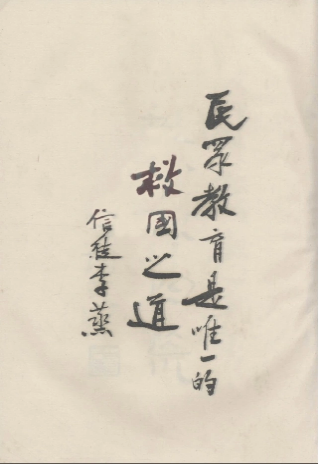 民眾教育是唯一的
救國之道
信徒李燕